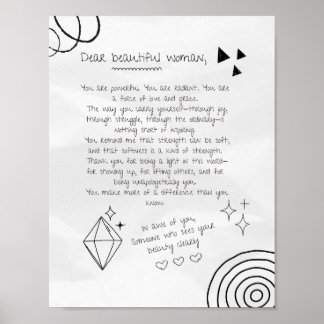 Dear beautiful woman,
You are powerful. You are radiant. You are
a force of love and grace.
The way you carry yourself—through joy,
through struggle, through the ordinary—is
nothing short of inspiring.
You remind me that strength can be soft,
and that softness is a kind of strength.
Thank you for being a light in this world—
for showing up, for lifting others, and for
being unapologetically you.
You make more of a difference than you
know.
In awe of you,
Someone who sees your
beauty clearly